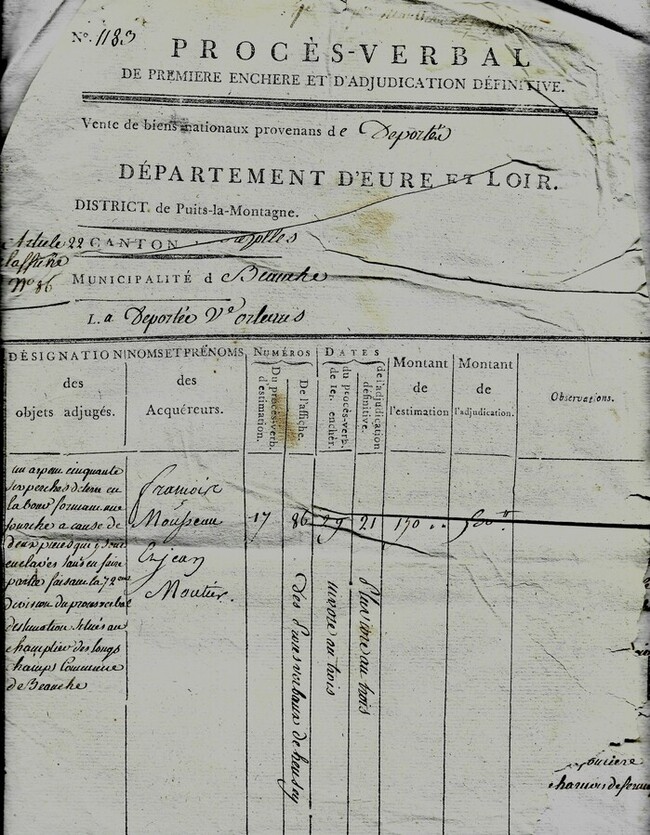 N°. 1183
PROCÈS-VERBAL
DE PREMIERE ENCHERE ET D'ADJUDICATION DÉFINITIVE.
Vente de biens nationaux provenans de Deportée
DÉPARTEMENT D'EURE ET LOIR.
DISTRICT de Puits-la-Montagne.
Article 22
CANTON
laffiche
N° 86
MUNICIPALITÉ d Beauche
La Deportée Ve orleans
DÉSIGNATION
des
objets adjugés.
NOMS ET PRÉNOMS
des
Acquéreurs.
NUMÉROS
Du procès-verb.
d'estimation.
De l'affiche.
DATES
du procès-verb.
de 1er. enchèr.
de l'adjudication
définitive.
Montant
de
l'estimation.
Montant
de
l'adjudication.
Observations.
un arpent cinquante
six perches de terre en
la forme formant une
fourche a cause de
deux pieces qui y sont
enclavés sans en faire
partie faisant la 72eme
Division du proces verbal
destimation situés au
champtier des longs
champs Commune
de Beauche
francois
Mousseau
Et jean
Moutier.
17
86
29
21
150
500
nivose an trois
Pluviose an trois